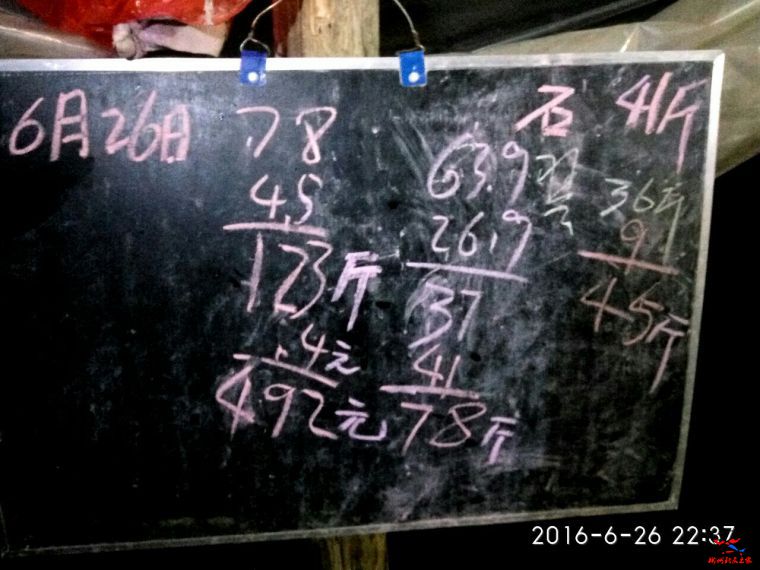 6月26日
78
45
123斤
.4元
492元
63.9
26.9
37
41
78斤
石 41斤
36斤
9
45斤
2016-6-26 22:37